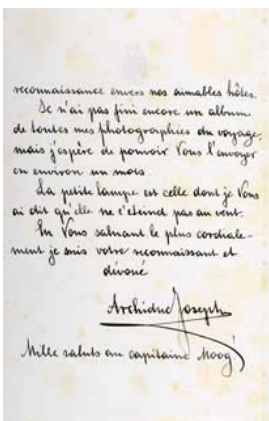 reconnaissance envers nos aimables hôtes.
Je n'ai pas fini encore un album
de toutes mes photographies du voyage,
mais j'espère de pouvoir Vous l'envoyer
en environ un mois.
La petite lampe est celle dont je Vous
ai dit qu'elle ne s'éteind pas au vent.
En Vous saluant le plus cordiale-
ment je suis votre reconnaissant et
dévoué
Archiduc Joseph
Mille saluts au capitaine Moog!